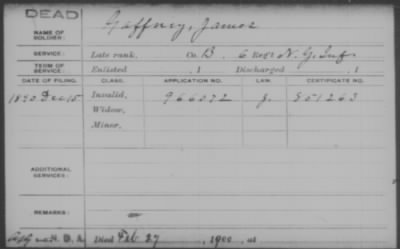 DEAD
NAME OF SOLDIER: Gaffney, James
SERVICE: Late rank, Co. B, 6 Reg't N.Y. Inf
TERM OF SERVICE: Enlisted , 1 Discharged , 1
DATE OF FILING. CLASS. APPLICATION NO. LAW. CERTIFICATE NO.
1890 Dec 15 Invalid, 966072 J.
Widow,
Minor,
ADDITIONAL SERVICES:
REMARKS:
Died Feb 27, 1900, at